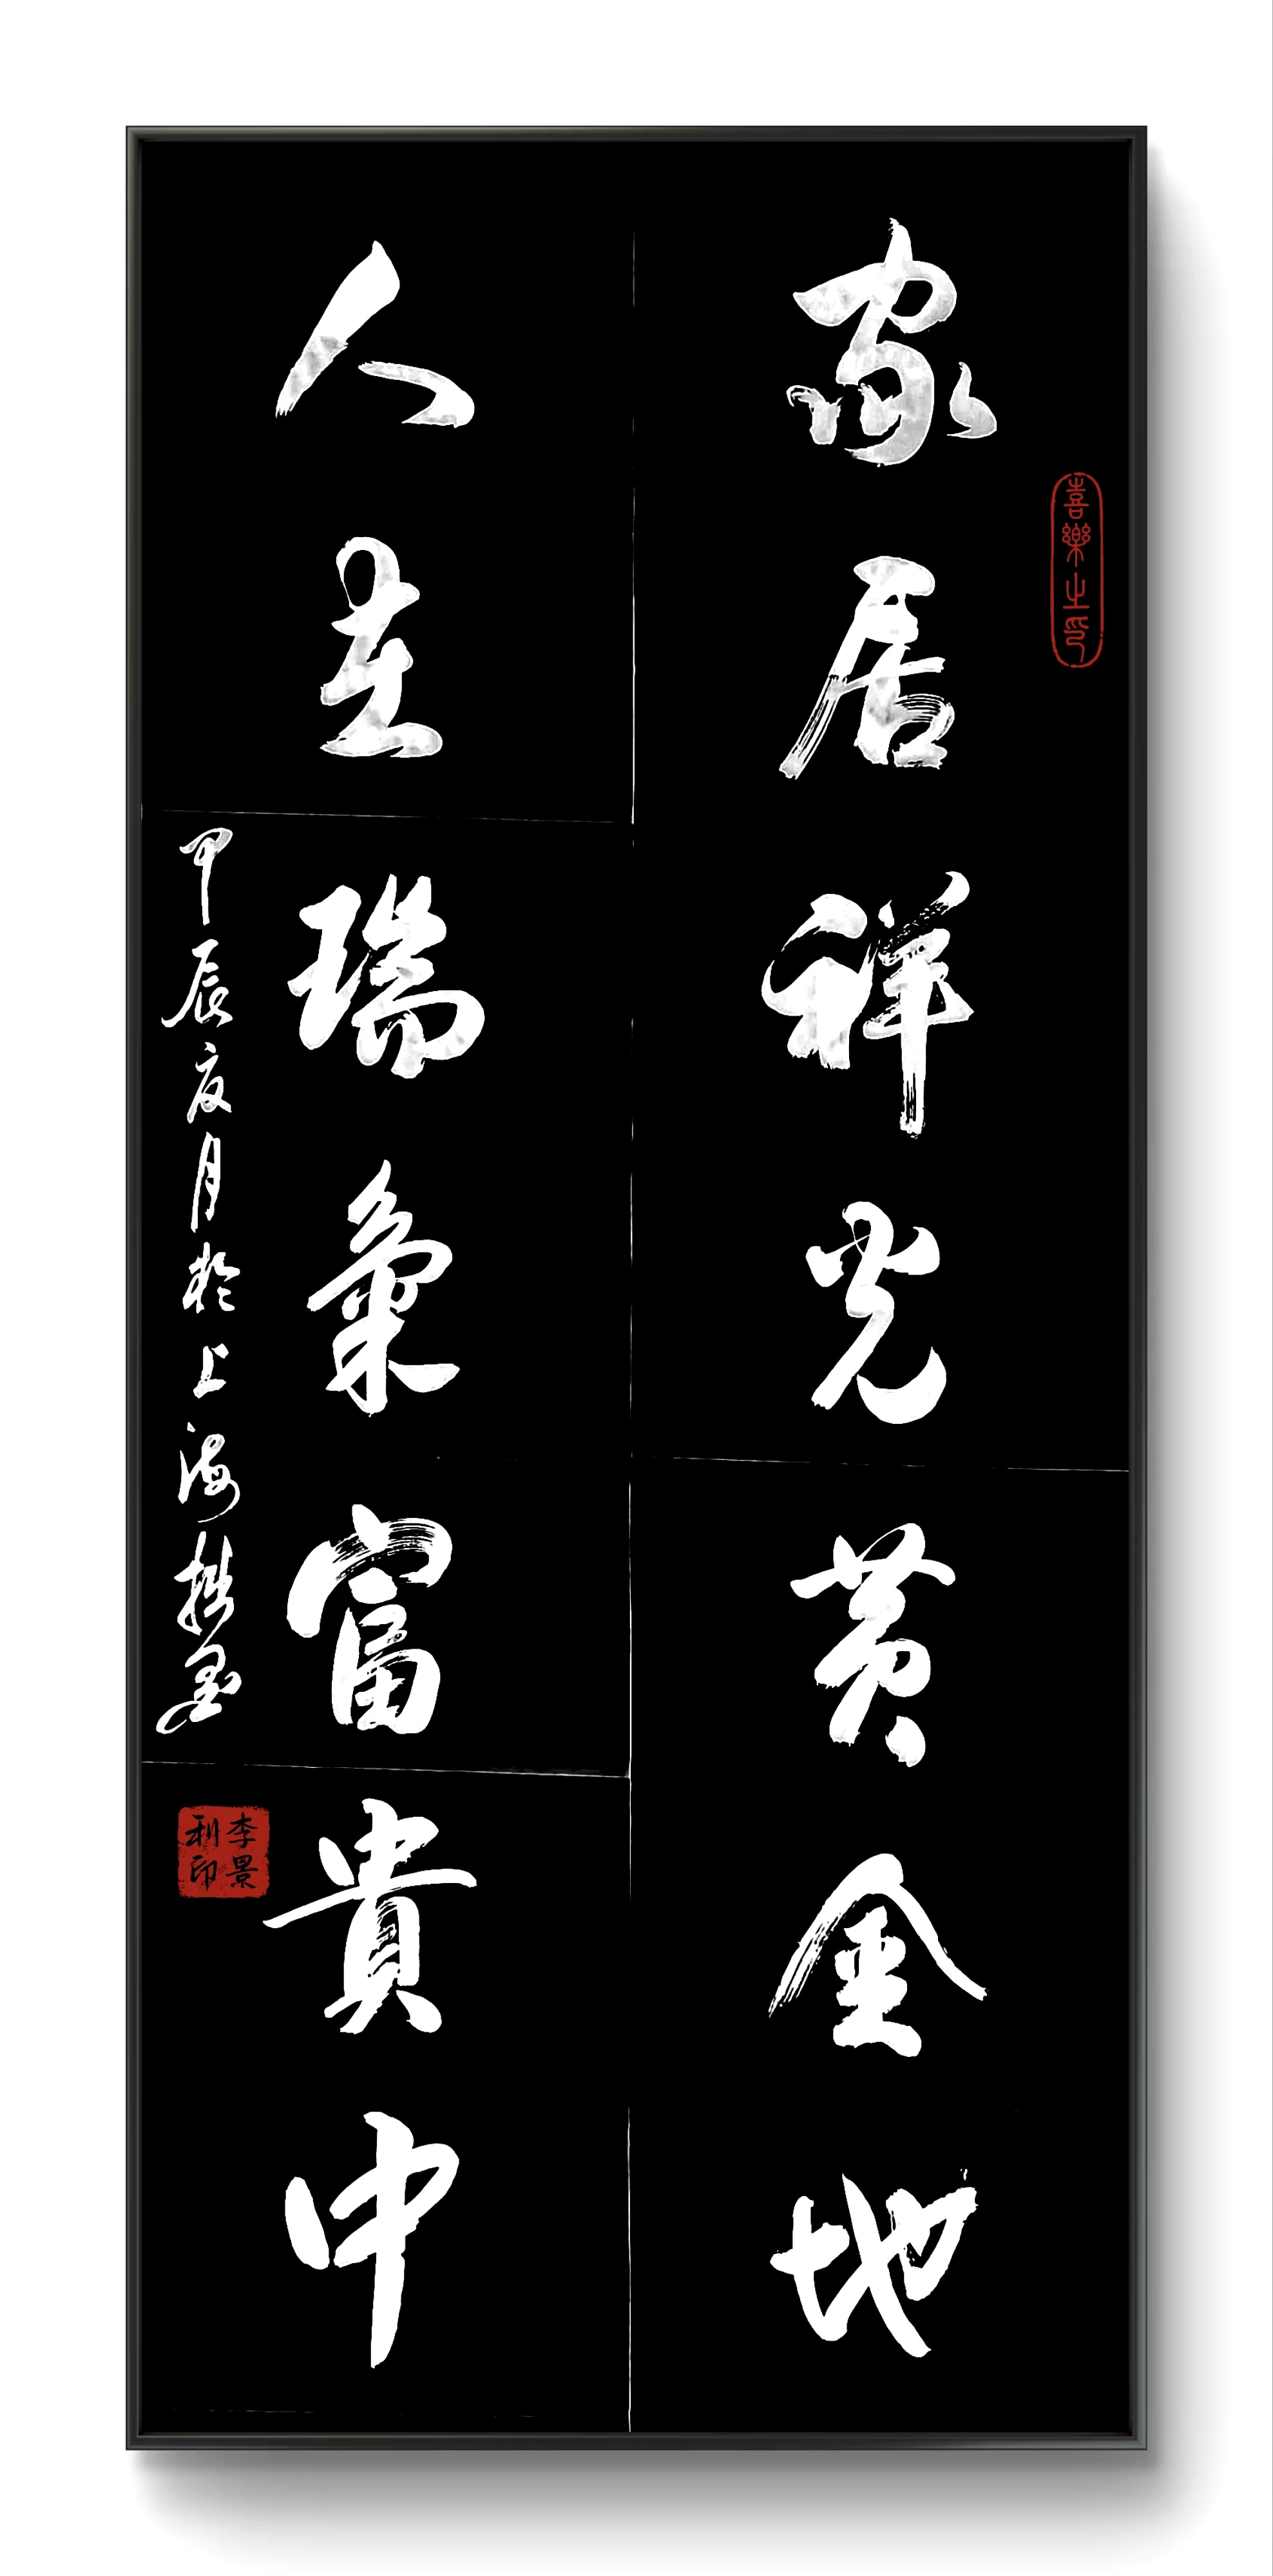 家居祥光黄金地
喜樂之印
人在瑞氣富貴中
甲辰夏月於上海
李景利印